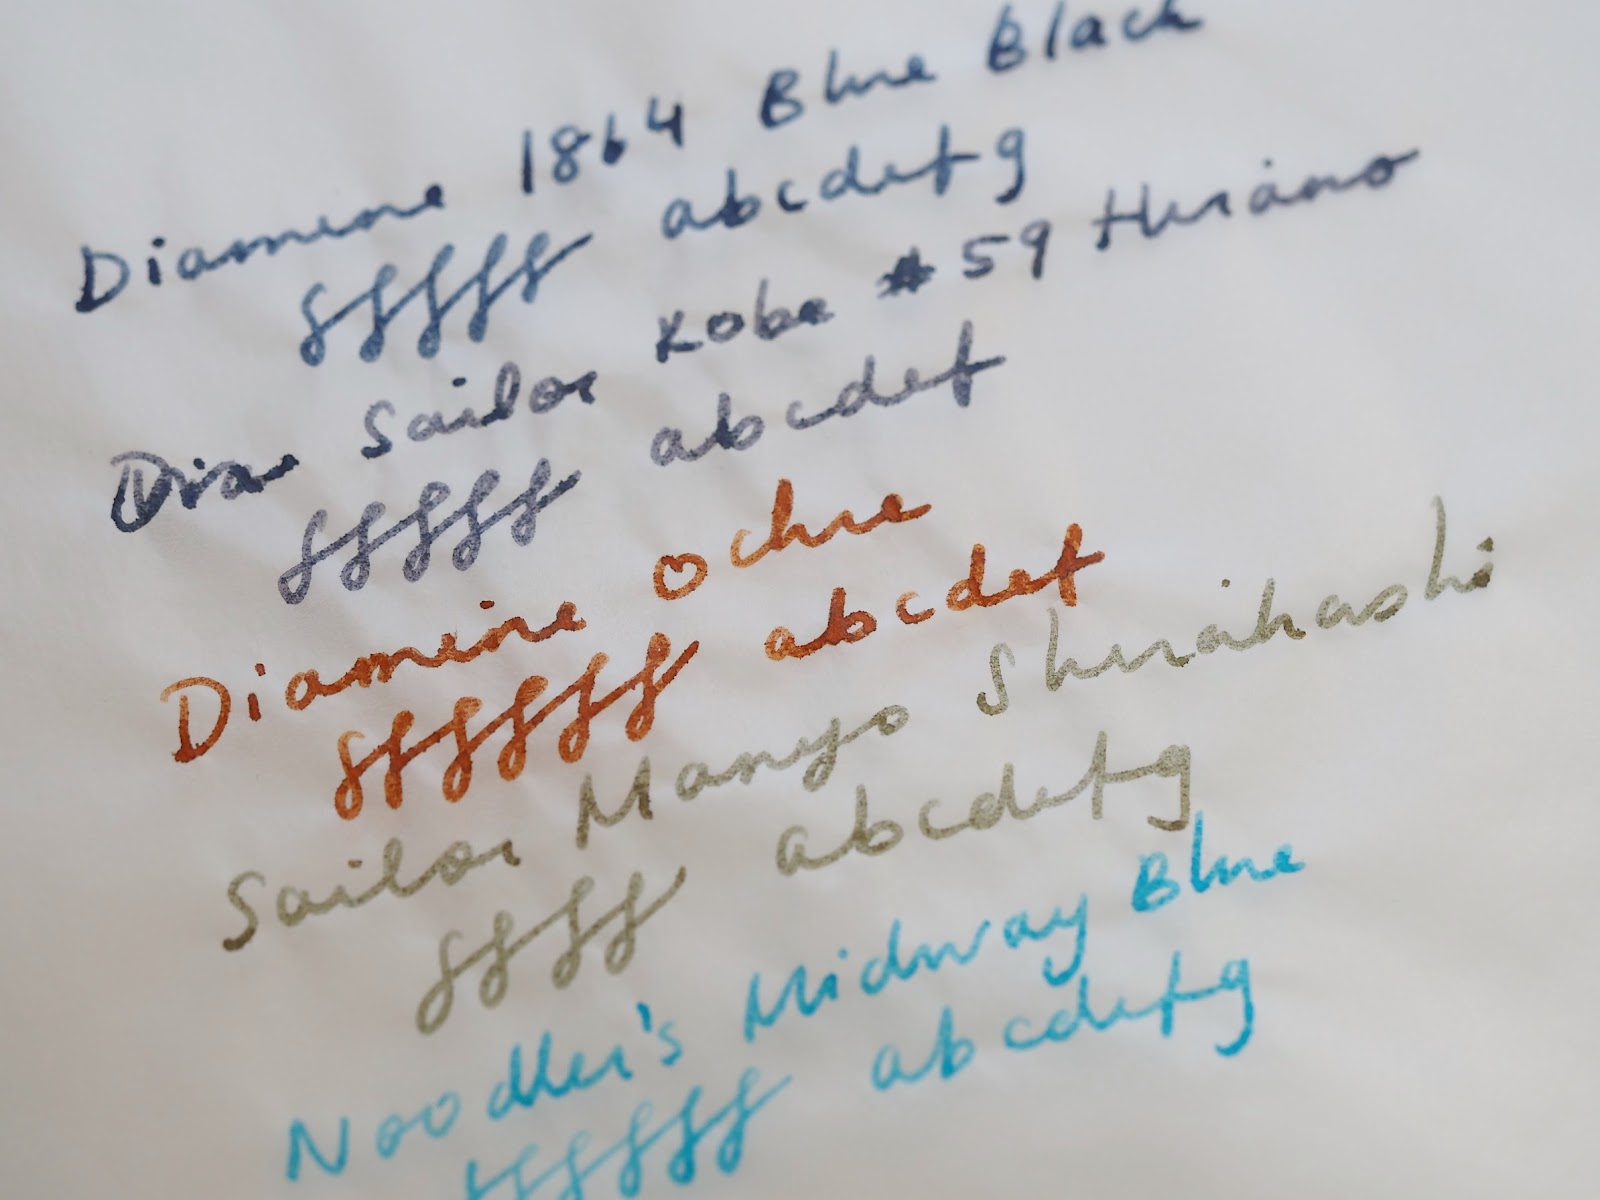 Diamine 1864 Blue Black
fffff abcdefg
Dia Sailor Kobe #59 Hirano
fffff abcdef
Diamine Ochre
ffffff abcdef
Sailor Manyo Shirakashi
ffff abcdefg
Noodler's Midway Blue
fffff abcdefg